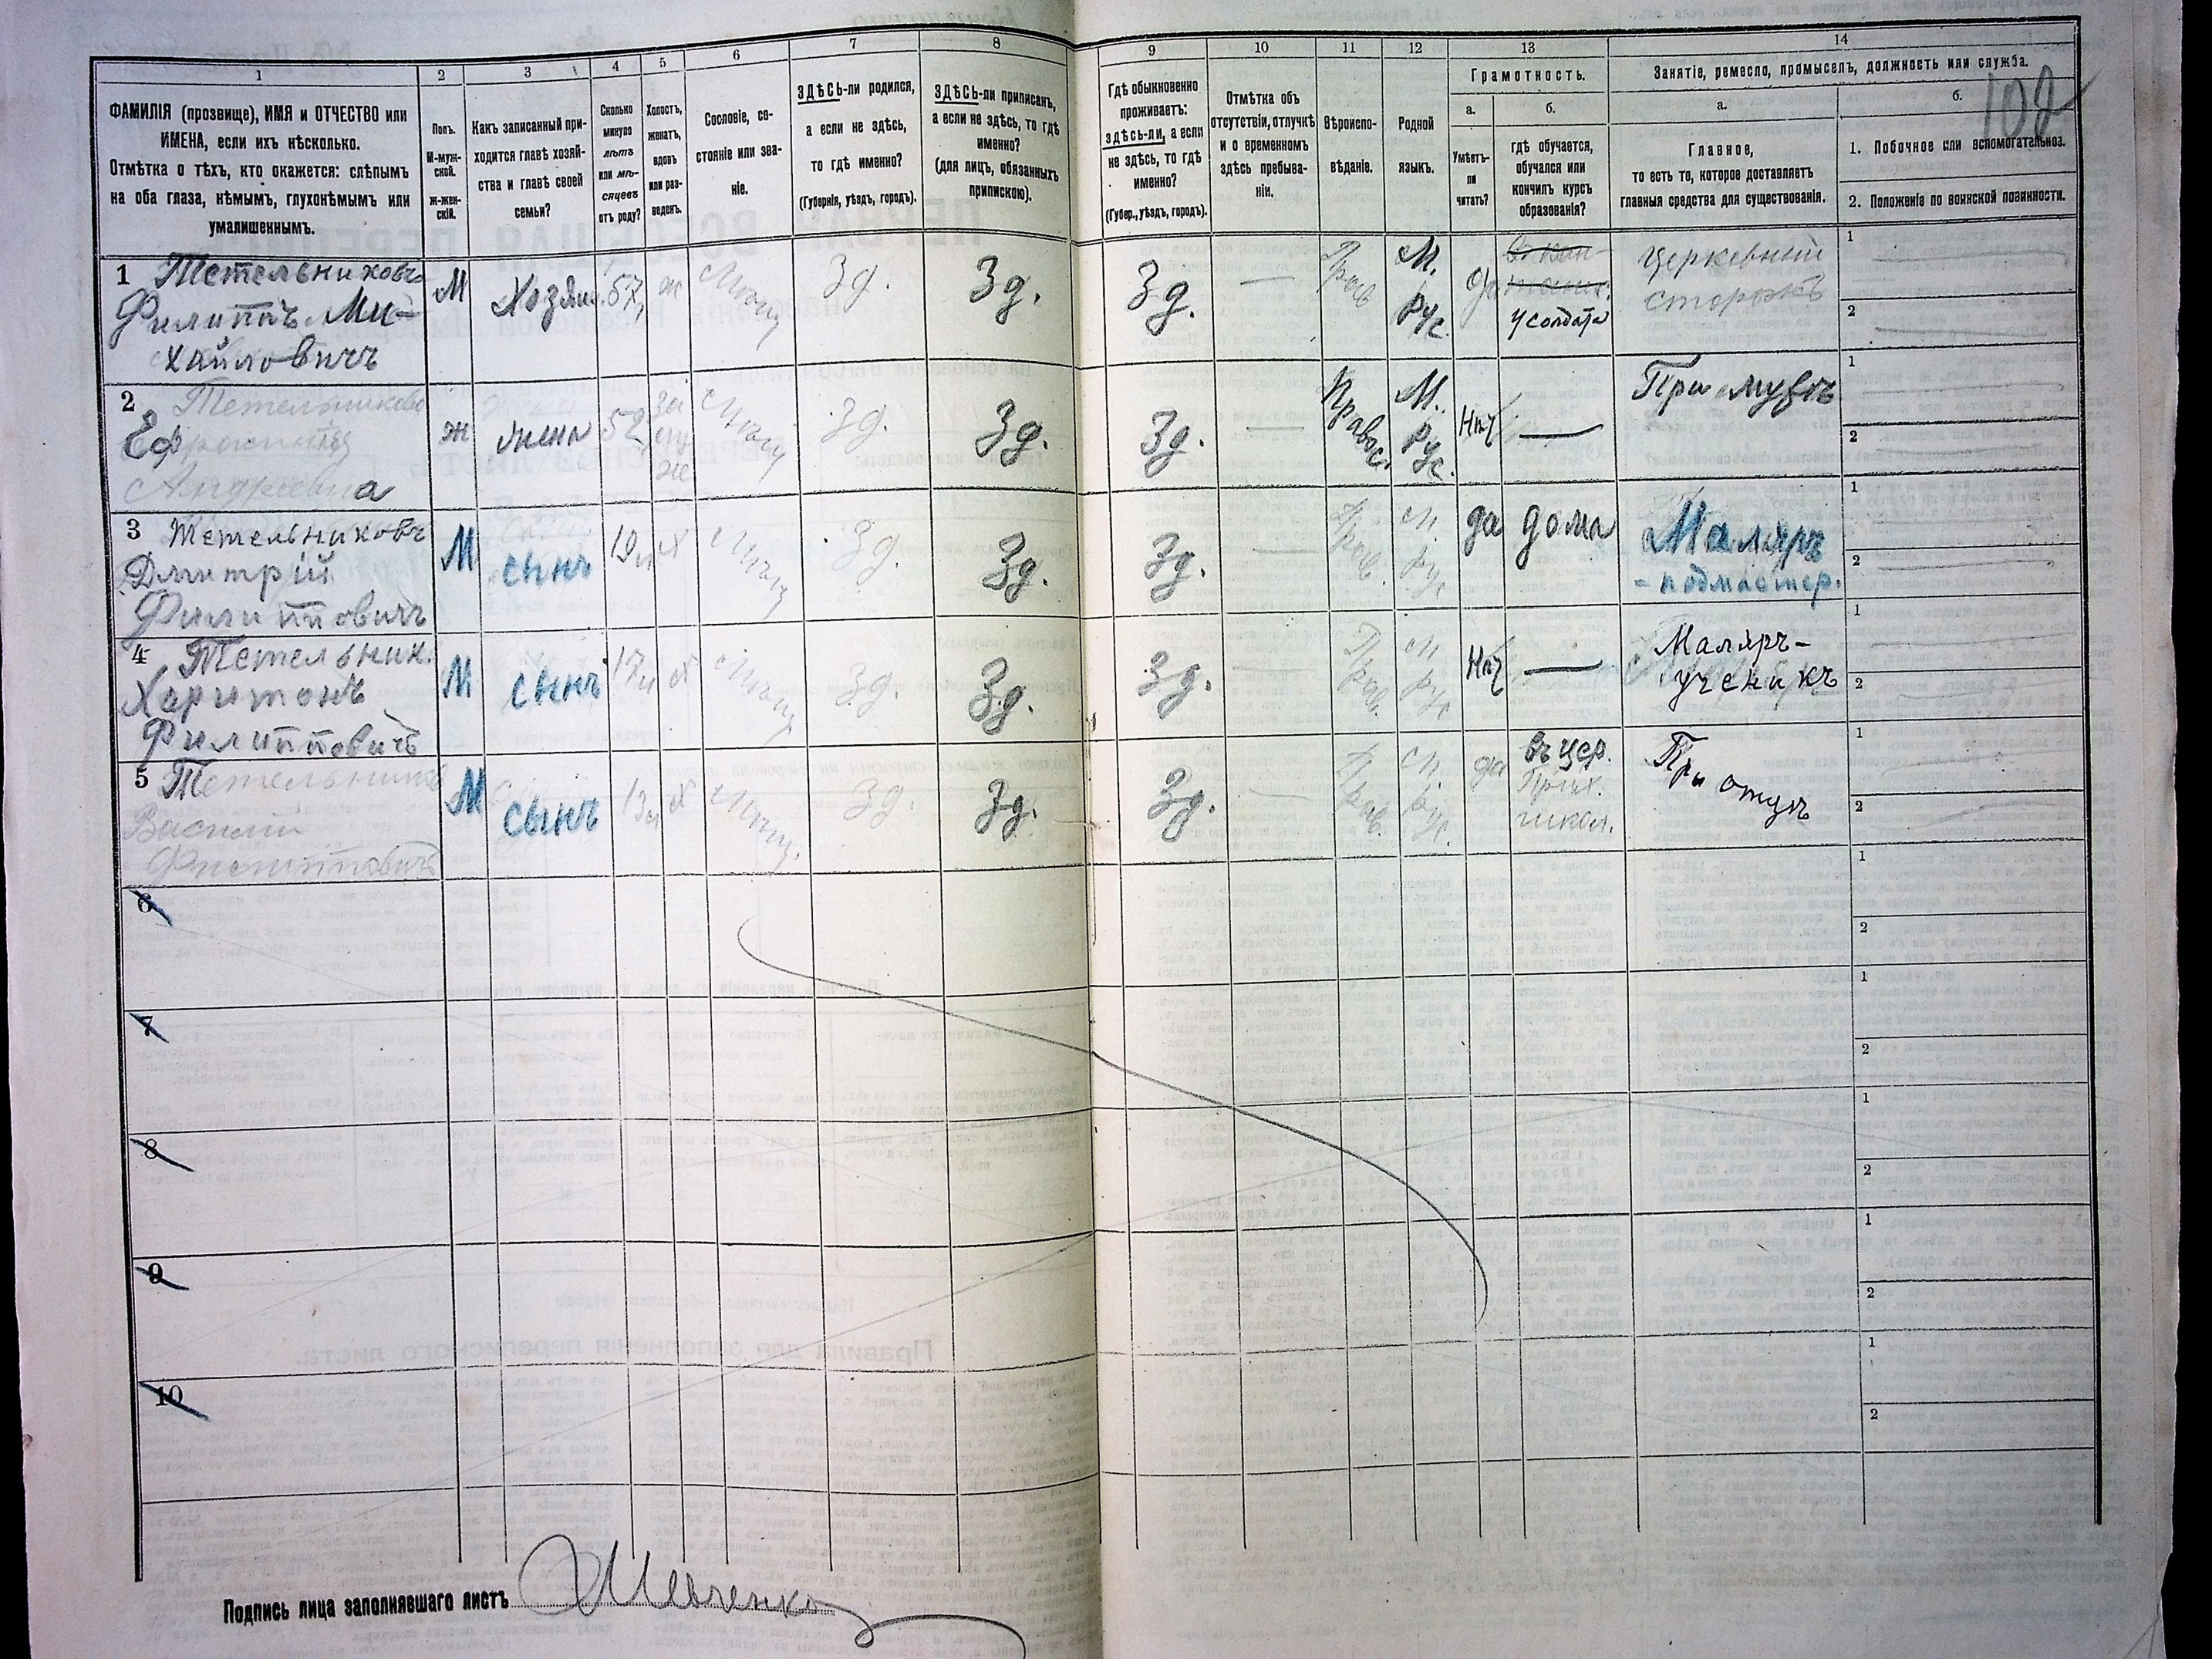 102
1
2
3
4
5
6
7
8
9
10
11
12
13
14
ФАМИЛІЯ (прозвище), ИМЯ и ОТЧЕСТВО или
ИМЕНА, если ихъ нѣсколько.
Отмѣтка о тѣхъ, кто окажется: слѣпымъ
на оба глаза, нѣмымъ, глухонѣмымъ или
умалишеннымъ.
Полъ.
М-муж-
ской.
Ж-жен-
скій.
Какъ записанный при-
ходится главѣ хозяй-
ства и главѣ своей
семьи?
Сколько
минуло
лѣтъ
или мѣ-
сяцевъ
отъ роду?
Холостъ,
женатъ,
вдовъ
или раз-
веденъ.
Сословіе, со-
стояніе или зва-
ніе.
ЗДѢСЬ-ли родился,
а если не здѣсь,
то гдѣ именно?
(Губернія, уѣздъ, городъ).
ЗДѢСЬ-ли приписанъ,
а если не здѣсь, то гдѣ
именно?
(для лицъ, обязанныхъ
припискою).
Гдѣ обыкновенно
проживаетъ:
здѣсь-ли, а если
не здѣсь, то гдѣ
именно?
(Губер., уѣздъ, городъ).
Отмѣтка объ
отсутствіи, отлучкѣ
и о временномъ
здѣсь пребыва-
ніи.
Вѣроиспо-
вѣданіе.
Родной
языкъ.
Грамотность.
а.
Умѣетъ-
ли
читать?
б.
гдѣ обучается,
обучался или
кончилъ курсъ
образованія?
Занятіе, ремесло, промыселъ, должность или служба.
а.
Главное,
то есть то, которое доставляетъ
главныя средства для существованія.
б.
1. Побочное или вспомогательное.
2. Положеніе по воинской повинности.
1 Тетельниковъ
Филиппъ Ми-
хайловичъ
М
Хозяинъ
57
ж
Мѣщ
Зд.
Зд.
Зд.
—
Прав
М.
Рус.
да
у солдата
Церковный
сторожъ
1
2
2 Тетельникова
Ефросинія
Андреевна
ж
жена
52
за
му
же
Мѣщ
Зд.
Зд.
Зд.
—
Правос.
М.
Рус.
Нѣт
—
При мужѣ
1
2
3 Тетельниковъ
Дмитрій
Филипповичъ
М
сынъ
19
х
Мѣщ
Зд.
Зд.
Зд.
—
Прав.
М.
Рус
да
дома
Маляръ
- подмастер.
1
2
4 Тетельник.
Харитонъ
Филипповичъ
М
сынъ
17
х
Мѣщ
Зд.
Зд.
Зд.
—
Прав.
М
Рус
Нѣт
—
Маляръ-
ученикъ
1
2
5 Тетельников
Василій
Филипповичъ
М
сынъ
13
х
Мѣщ.
Зд
Зд.
Зд.
—
Прав.
М
Рус.
да
въ цер.
Прих.
школ.
При отцѣ
1
2
6
1
2
7
1
2
8
1
2
9
1
2
10
1
2
Подпись лица заполнявшаго листъ